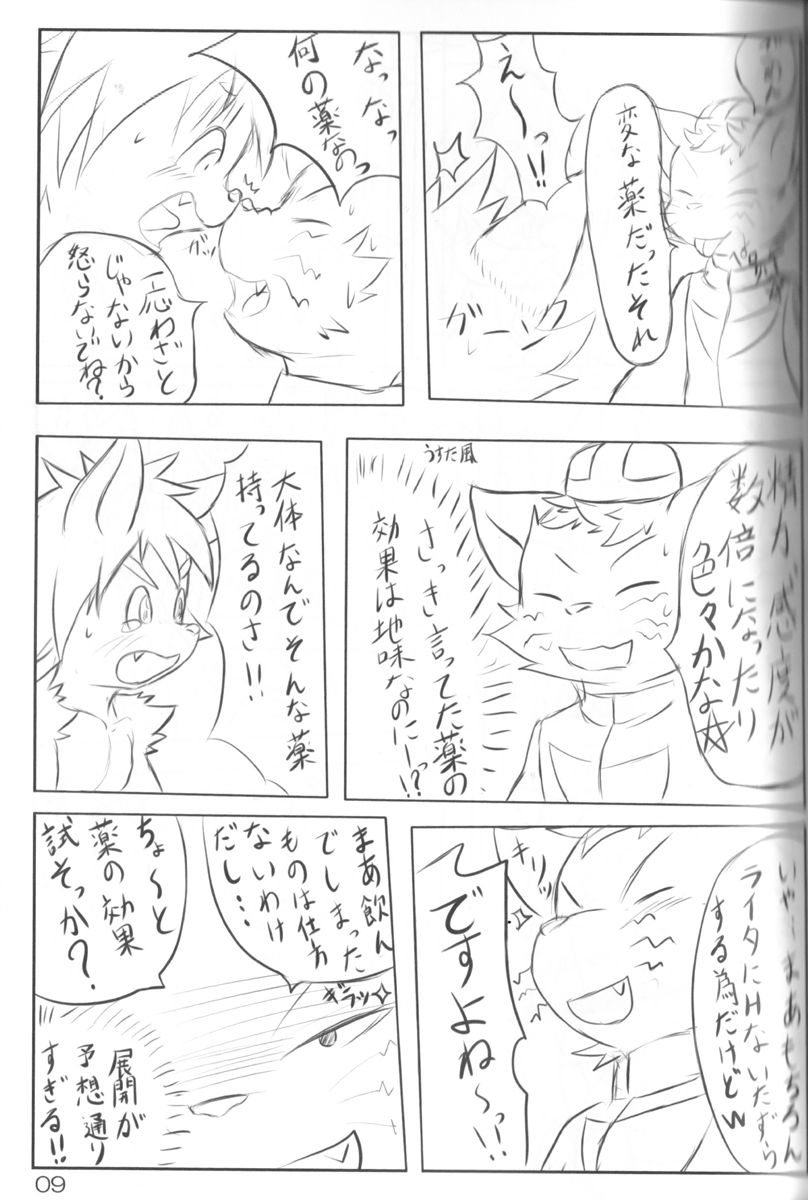 ごめん
変な薬だったそれ
え〜っ!!
ペタ
ガーンッ
なっなっ
何の薬なのっ
ガッ
一応わざと
じゃないから
怒らないでね?
精力が感度が
数倍になったり
色々かな☆
うすた風
さっき言ってた薬の
効果は地味なのにーっ!?
大体なんでそんな薬
持ってるのさ!!
いや…まあもちろん
ライタにHないたずら
する為だけどw
キリッ
ですよね〜っ!!
まあ飲ん
でしまった
ものは仕方
ないわけ
だし…
ギラッ
ちょ〜と
薬の効果
試そっか?
展開が
予想通り
すぎる!!
09